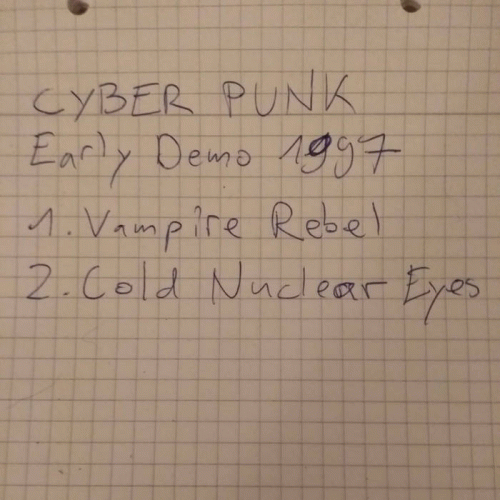 CYBER PUNK
Early Demo 1997
1. Vampire Rebel
2. Cold Nuclear Eyes